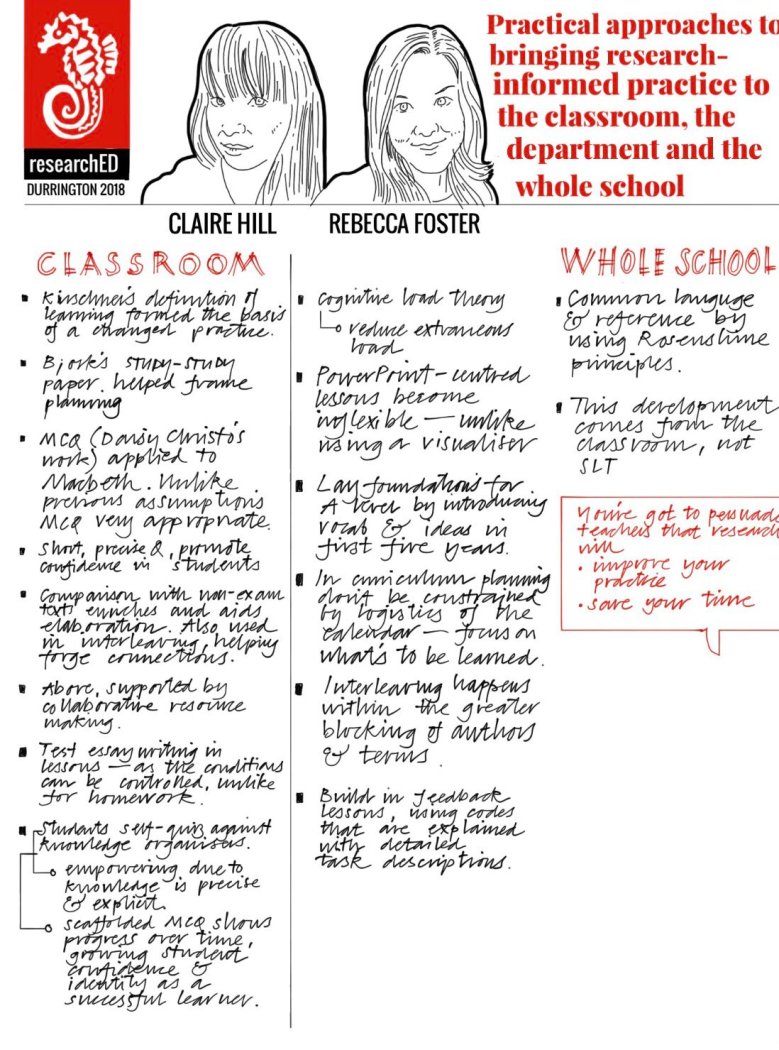 researchED
DURRINGTON 2018
CLAIRE HILL
REBECCA FOSTER
Practical approaches to
bringing research-
informed practice to
the classroom, the
department and the
whole school
CLASSROOM
Kirschner's definition of
learning formed the basis
of a changed practice.
Bjork's STUDY-STUDY
paper. helped frame
planning
MCQ (Daisy Christo's
work) applied to
Macbeth. Unlike
previous assumptions
MCQ very appropriate.
Short, precise Q, promote
confidence in students
Comparison with non-exam
text enriches and aids
elaboration. Also used
in interleaving, helping
forge connections.
Above, supported by
collaborative resource
making.
Test essay writing in
lessons — as the conditions
can be controlled, unlike
for homework.
Students self-quiz against
knowledge organisers.
empowering due to
knowledge is precise
& explicit.
scaffolded MCQ shows
progress over time,
growing student
confidence &
identity as a
successful learner.
Cognitive load Theory
reduce extraneous
load
PowerPoint-centred
lessons become
inflexible — unlike
using a visualiser
Lay foundations for
A level by introducing
vocab & ideas in
first five years.
In curriculum planning
don't be constrained
by logistics of the
calendar — focus on
what's to be learned.
Interleaving happens
within the greater
blocking of authors
& terms.
Build in feedback
lessons, using codes
that are explained
with detailed
task descriptions.
WHOLE SCHOOL
Common language
& reference by
using Rosenshine
principles.
This development
comes from the
classroom, not
SLT
You've got to persuade
teachers that research
will
• improve your
practice
• save your time